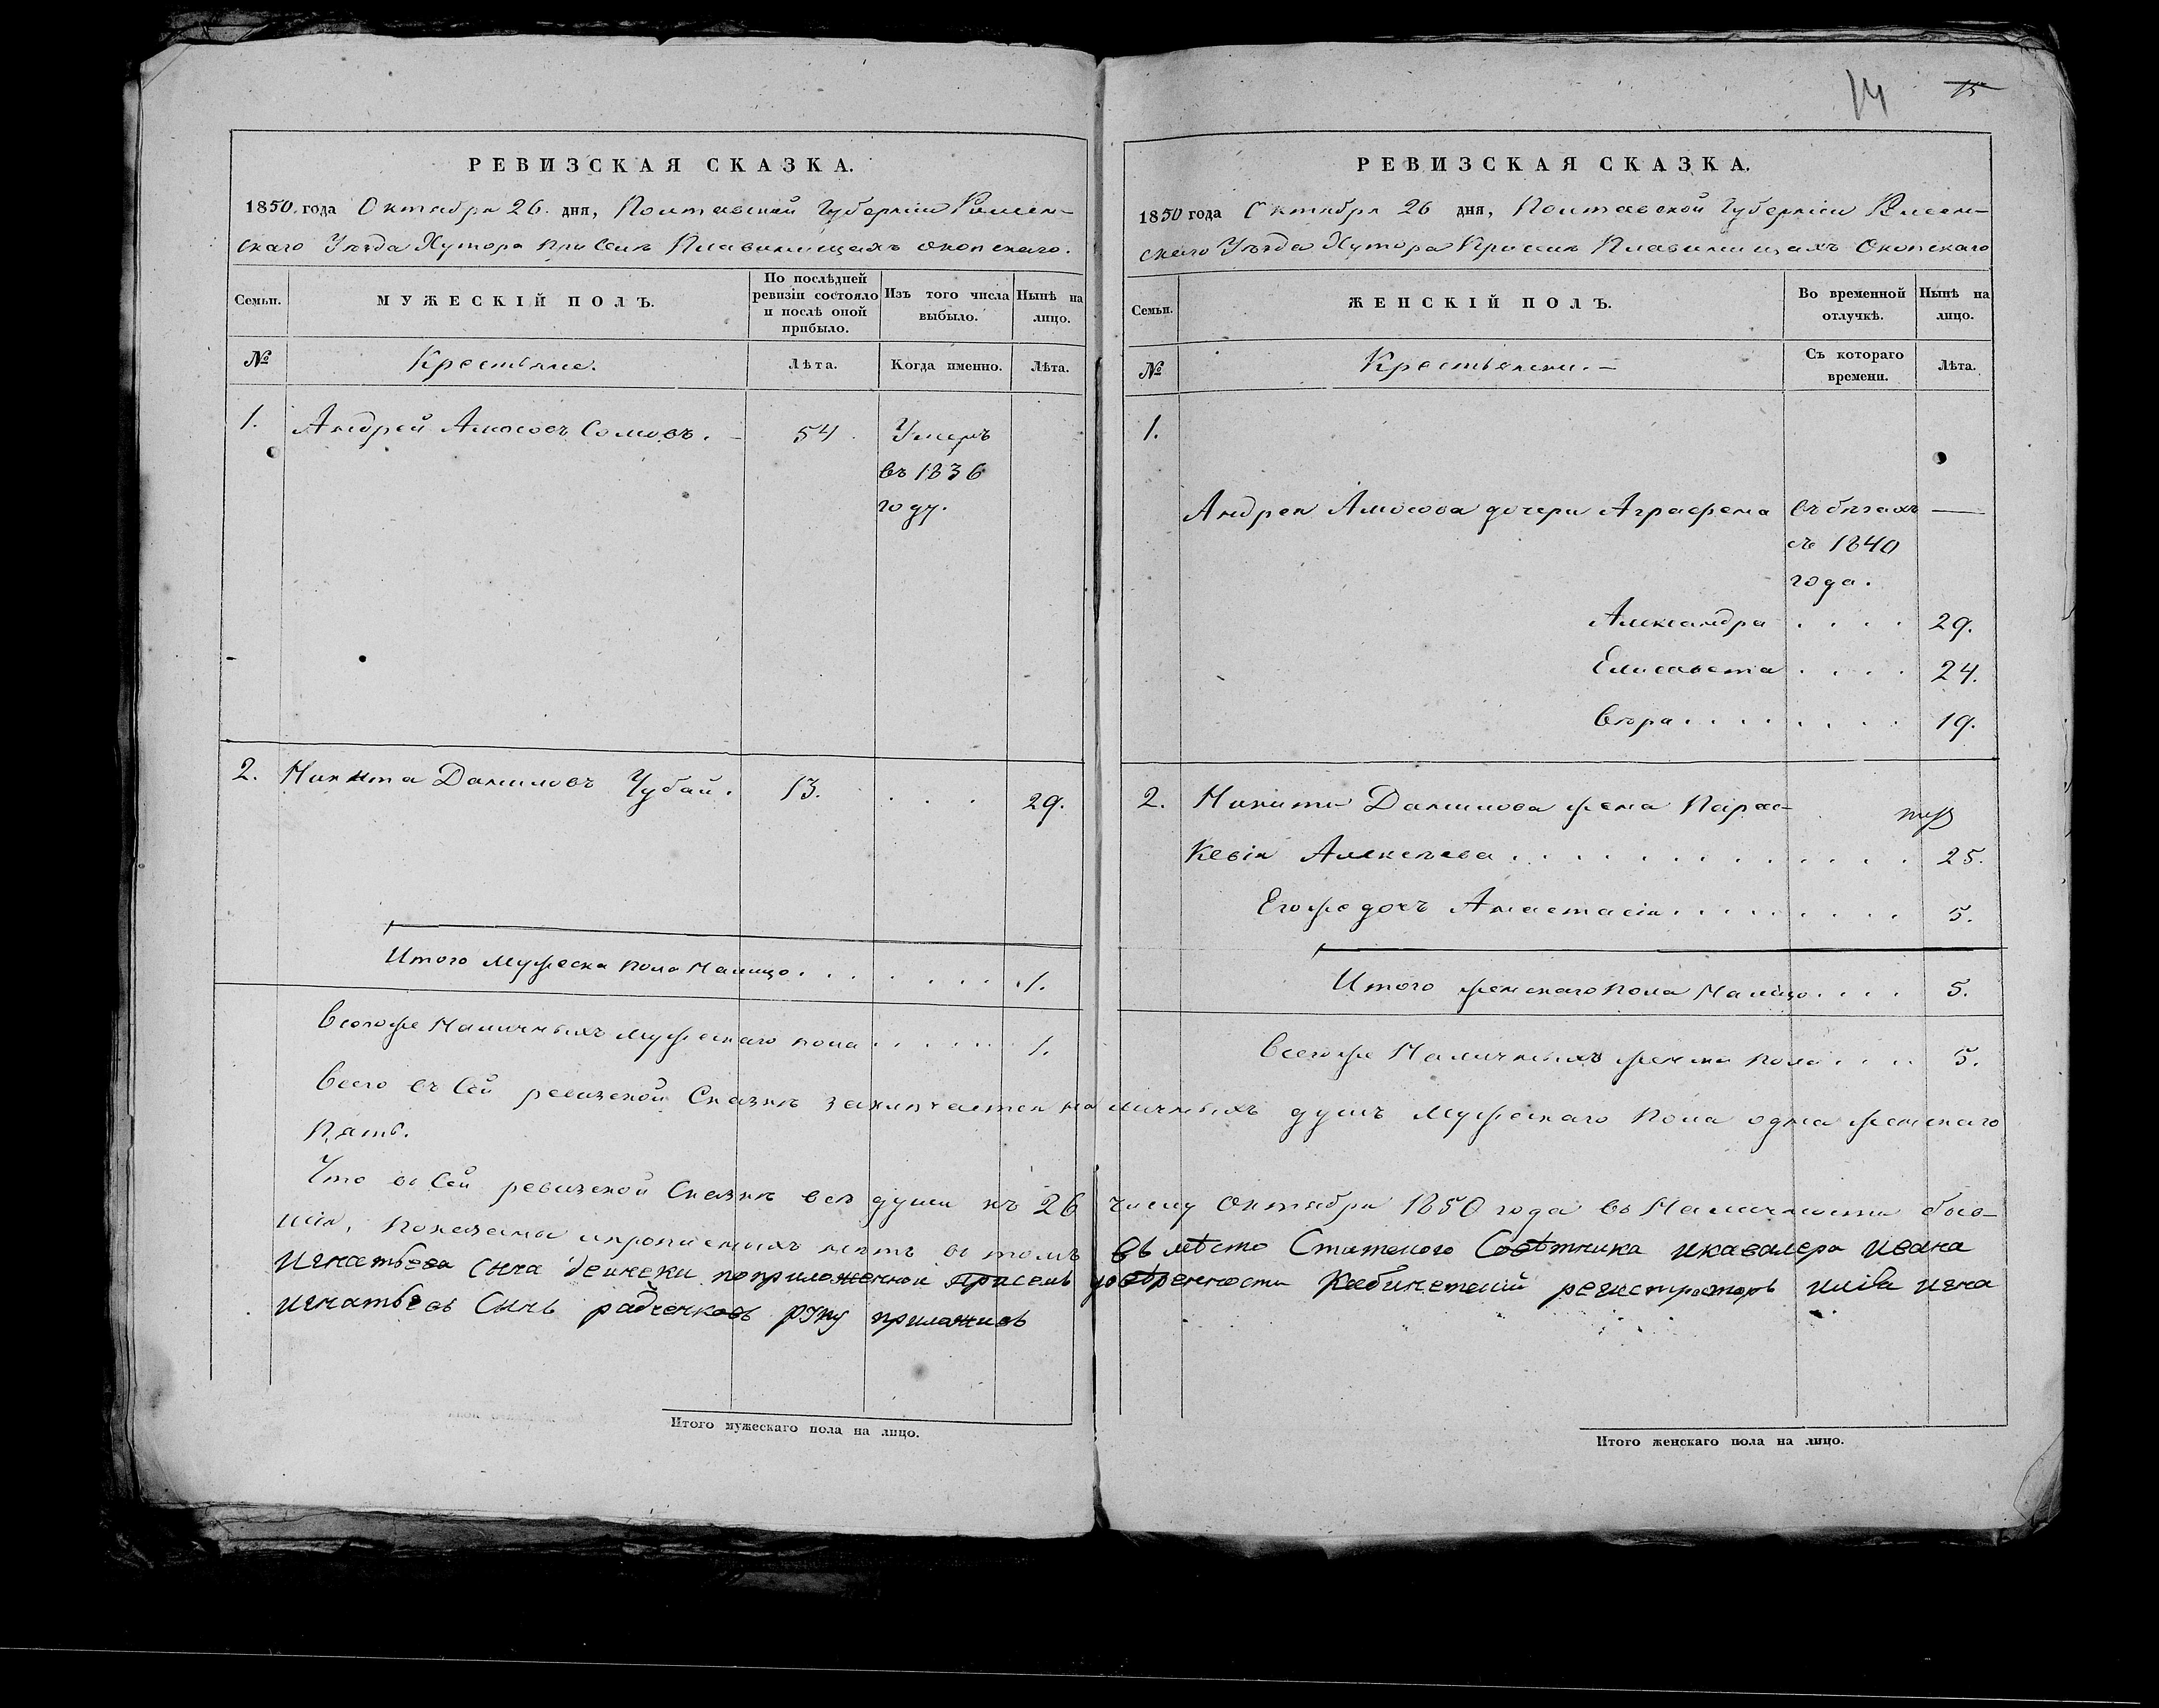 РЕВИЗСКАЯ СКАЗКА.
1850. года Октября 26. дня, Полтавской Губерніи Ромен-
скаго Уѣзда Хутора при Селѣ Плавинищахъ Окопскаго.
Семьи.
МУЖЕСКІЙ ПОЛЪ.
По послѣдней ревизіи состояло и послѣ оной прибыло.
Изъ того числа выбыло.
Нынѣ на лицо.
№
Крестьяне.
Лѣта.
Когда именно.
Лѣта.
1. Андрей Амосовъ Сомовъ. 54. Умеръ
въ 1836
году.
2. Никита Даниловъ Чубай. 13. . . . 29.
Итого мужеска пола налицо . . . . . . . 1.
Всегоже наличныхъ мужескаго пола . . . . . . 1.
14 15
РЕВИЗСКАЯ СКАЗКА.
1850 года Октября 26 дня, Полтавской Губерніи Ромен-
скаго Уѣзда Хутора При селѣ Плавинищахъ Окопскаго
Семьи.
ЖЕНСКІЙ ПОЛЪ.
Во временной отлучкѣ.
Нынѣ на лицо.
№
Крестьянки. –
Съ котораго времени.
Лѣта.
1.
Андрея Амосова дочери Аграфена въ бѣгахъ —
съ 1840
года.
Александра . . . . 29.
Елисавета . . . . 24.
Вѣра . . . . . . . 19.
2. Никиты Данилова жена Парас-
кевія Алексѣева . . . . . . . . . . . . 25.
Его же дочь Анастасія . . . . . . . . 5.
Итого женскаго пола налицо . . . . 5.
Всегоже Наличныхъ женска пола . . . . 5.
Всего въ Сей ревизской Сказкѣ заключается наличныхъ душъ мужескаго пола одна женскаго
пять.
Что въ Сей ревизской Сказкѣ всѣ души къ 26 числу Октября 1850 года въ Наличности быв-
шія, показаны и прописныхъ нѣтъ въ томъ въ мѣсто Статского Совѣтника и кавалера Ивана
Игнатьева сына Дейнеки по приложенной при семъ доверенности регистраторъ
Игнатьевъ Сынъ радченковъ руку приложивъ
Итого мужескаго пола на лицо.
Итого женскаго пола на лицо.